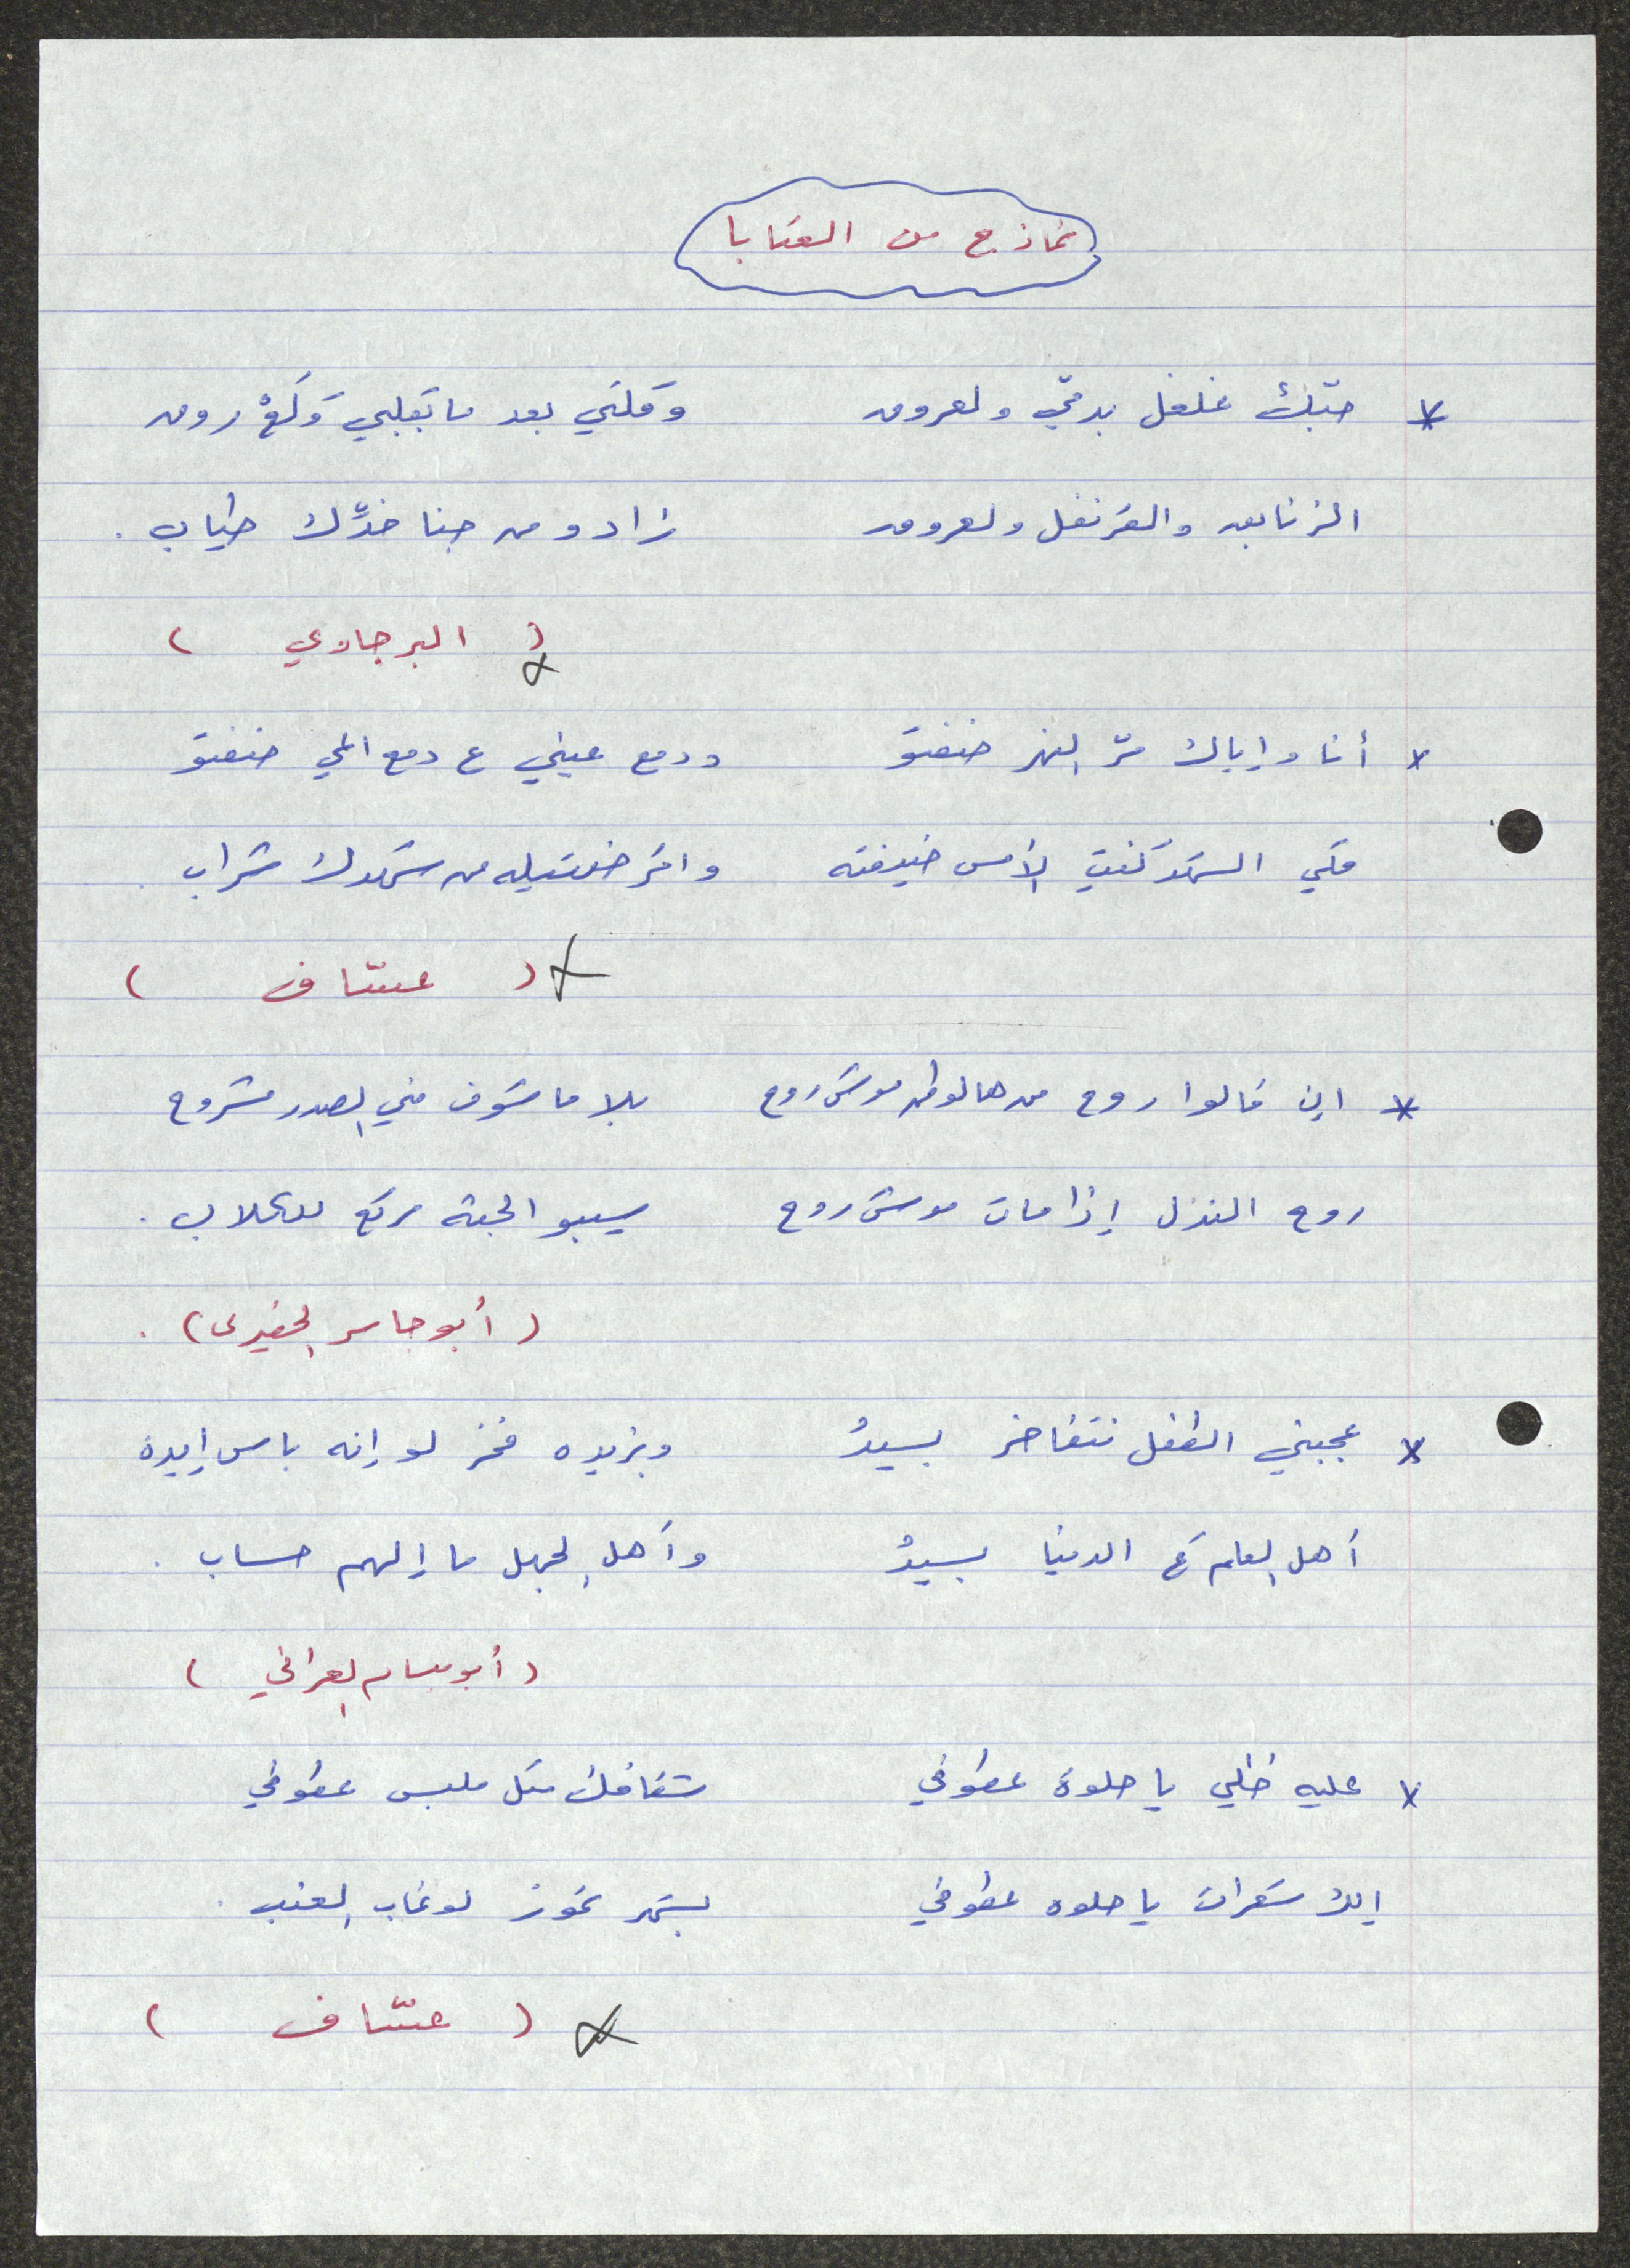 نماذج من العتابا
* حبّك غلغل بدمّي ولعروق وقلتي بعد ما بقلبي وَلَعْ روق
الزنابق والقرنفل ولعروق زادو من جنا خدّك طياب .
( البرجاوي )
* أنا واياك مرّ النهر ضفتو ودمع عيني ع دمع المي ضفتو
قلبي الشهد كنتِ الأمس ضيفته واقرضتيله من شهدك شراب .
( عسّاف )
* اين قالوا روح من هالوطن موش روح بلا ما شوف مني الصدر مشروح
روح النذل إذا مات موش روح سيبو الجثه مرتع للكلاب .
( أبو جاسر الحفيري ) .
* عجبني الطفل نتفاخر بسيدُ وبزيده فخر لو إنه باس إيده
أهل العلم عَ الدنيا بسيدُ وأهل الجهل ما إلهم حساب .
( أبو بسام العراقي )
* عليه ظلي يا حلوة عطوفي شفافك متل ملبس عطوفي
إلك شعرات يا حلوه عطوفي بشهر تموز لو غاب العنب .
( عسّاف )